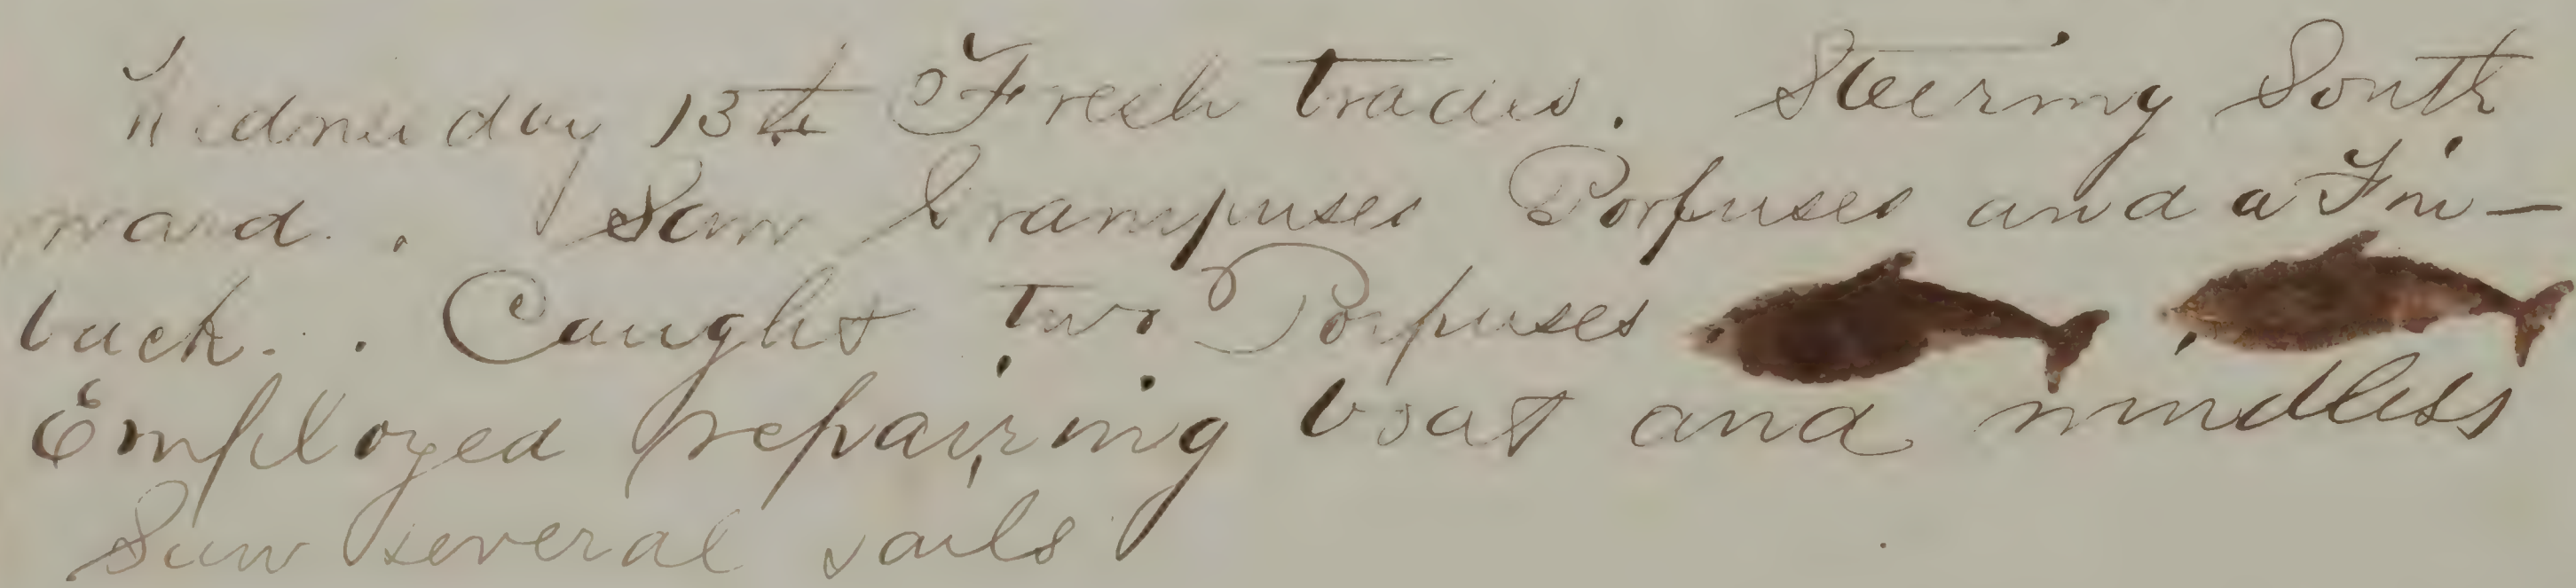 Wednesday 13th Fresh trades. Steering South
ward. Saw Grampuses Porpuses and a Fin-
back. Caught two Porpuses
Employed repairing boat and windlass
Saw several sails